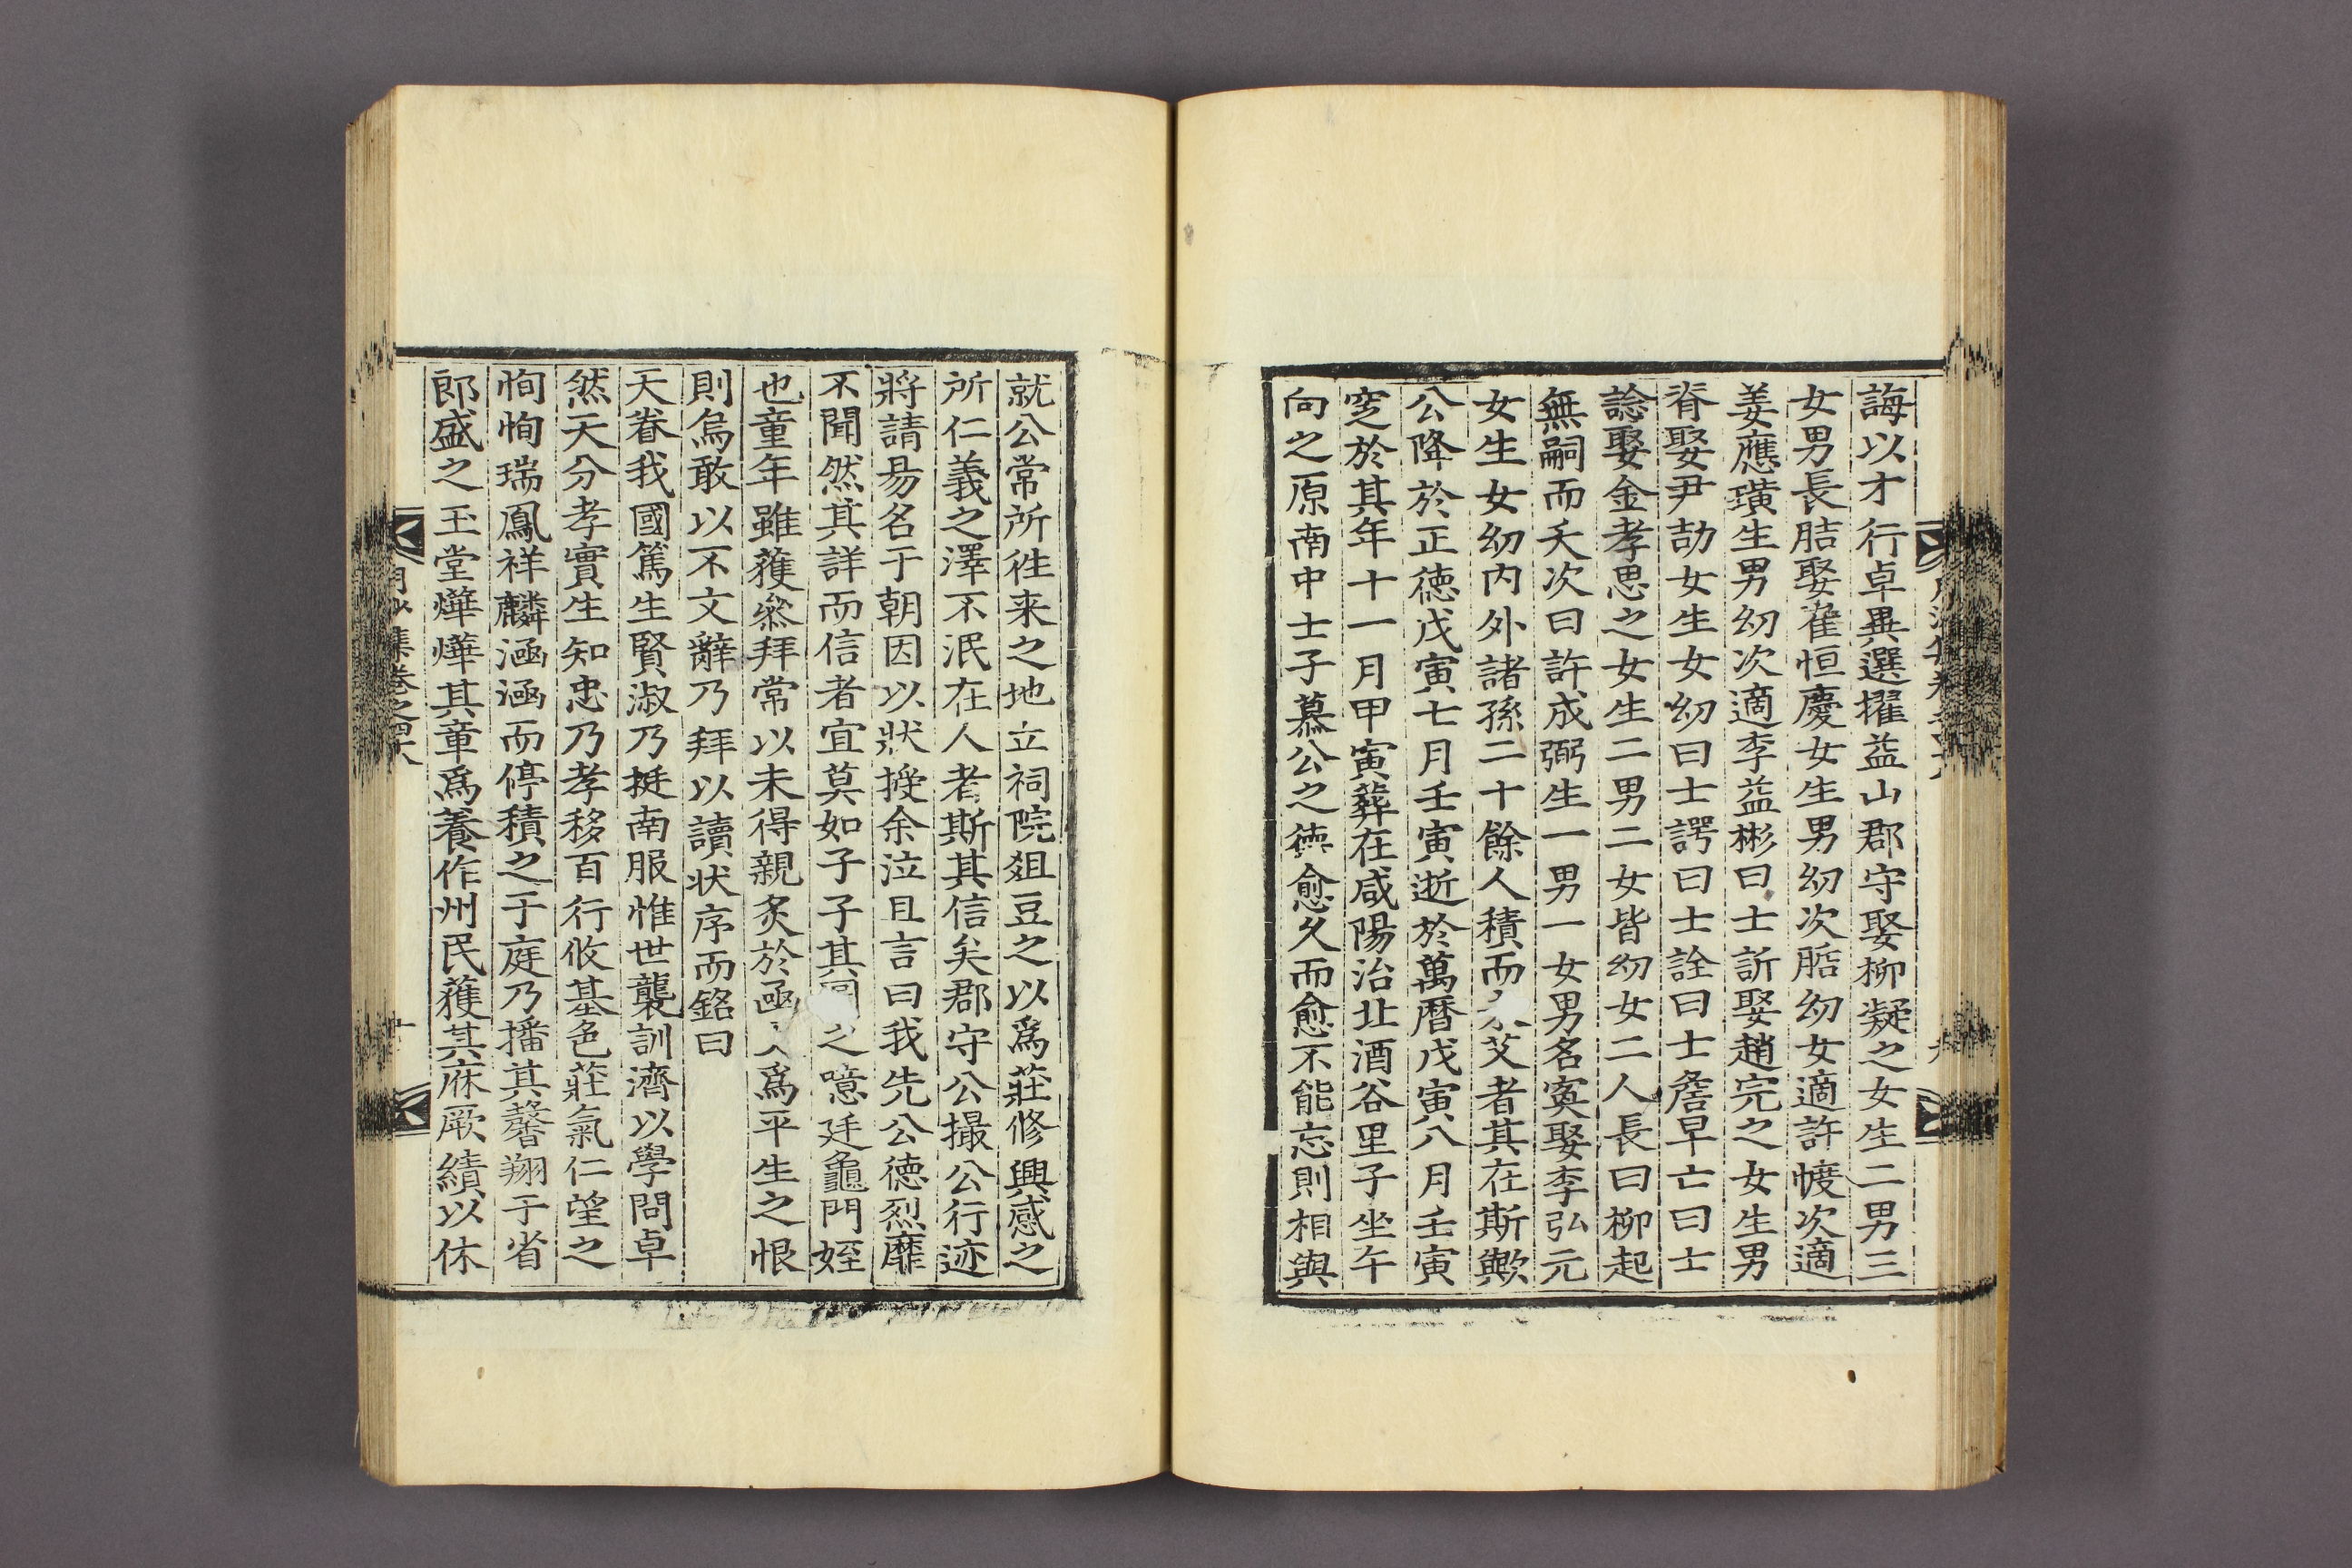 誨以才行卓異選擢益山郡守娶柳凝之女生二男三
女男長𦙶娶崔恒慶女生男幼次𦛨幼女適許㦿次適
姜應璜生男幼次適李益彬曰士訢娶趙完之女生男
脊娶尹劼女生女幼曰士諤曰士詮曰士詹早亡曰士
諗娶金孝思之女生二男二女皆幼女二人長曰柳起
無嗣而夭次曰許成弼生一男一女男名寏娶李弘元
女生女幼內外諸孫二十餘人積而未艾者其在斯歟
公降於正德戊寅七月壬寅逝於萬曆戊寅八月壬寅
窆於其年十一月甲寅葬在咸陽治北酒谷里子坐午
向之原南中士子慕公之德愈久而愈不能忘則相與
就公常所徃来之地立祠院爼豆之以爲莊修興感之
所仁義之澤不泯在人者斯其信矣郡守公撮公行迹
將請易名于朝因以狀授余泣且言曰我先公德烈靡
不聞然其詳而信者宜莫如子子其圖之噫廷龜門姪
也童年雖蒦叅拜常以未得親炙於凾丈爲平生之恨
則烏敢以不文辭乃拜以讀狀序而銘曰
天眷我國篤生賢淑乃挻南服惟世襲訓濟以學問卓
然天分孝實生知忠乃孝移百行攸基色莊氣仁望之
恂恂瑞鳳祥麟涵涵而停積之于庭乃播其馨翔于省
郎盛之玉堂燁燁其章爲養作州民蒦其庥厥績以休
集卷之四十六
十